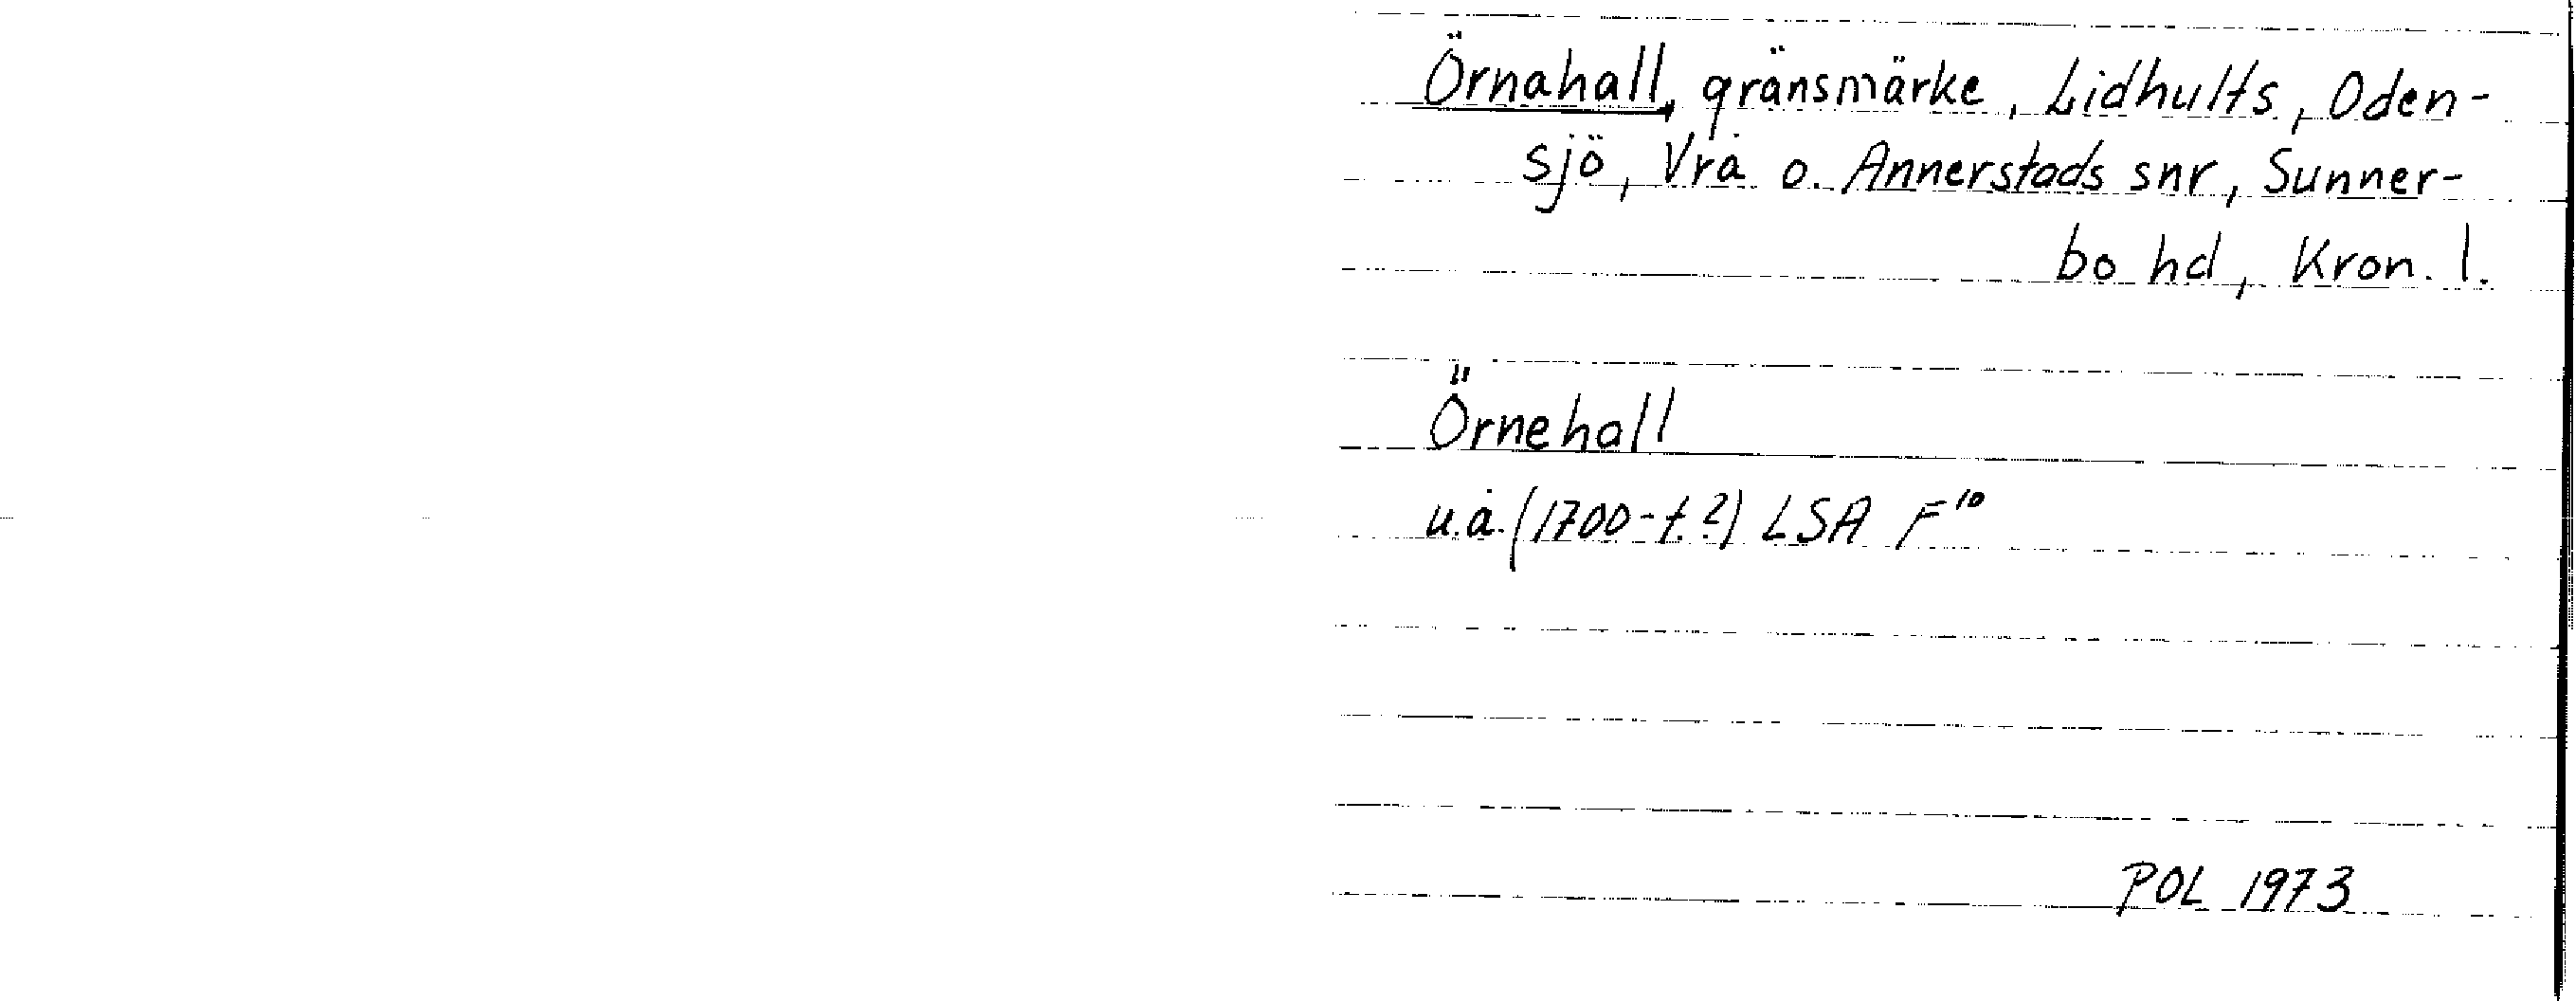 Örnahall, gränsmärke, Lidhults, Oden-
sjö, Vrå o. Annerstads snr, Sunner-
bo hd, Kron. l.
Örnehall
u.å. (1700-t.?) LSA F10
POL 1973